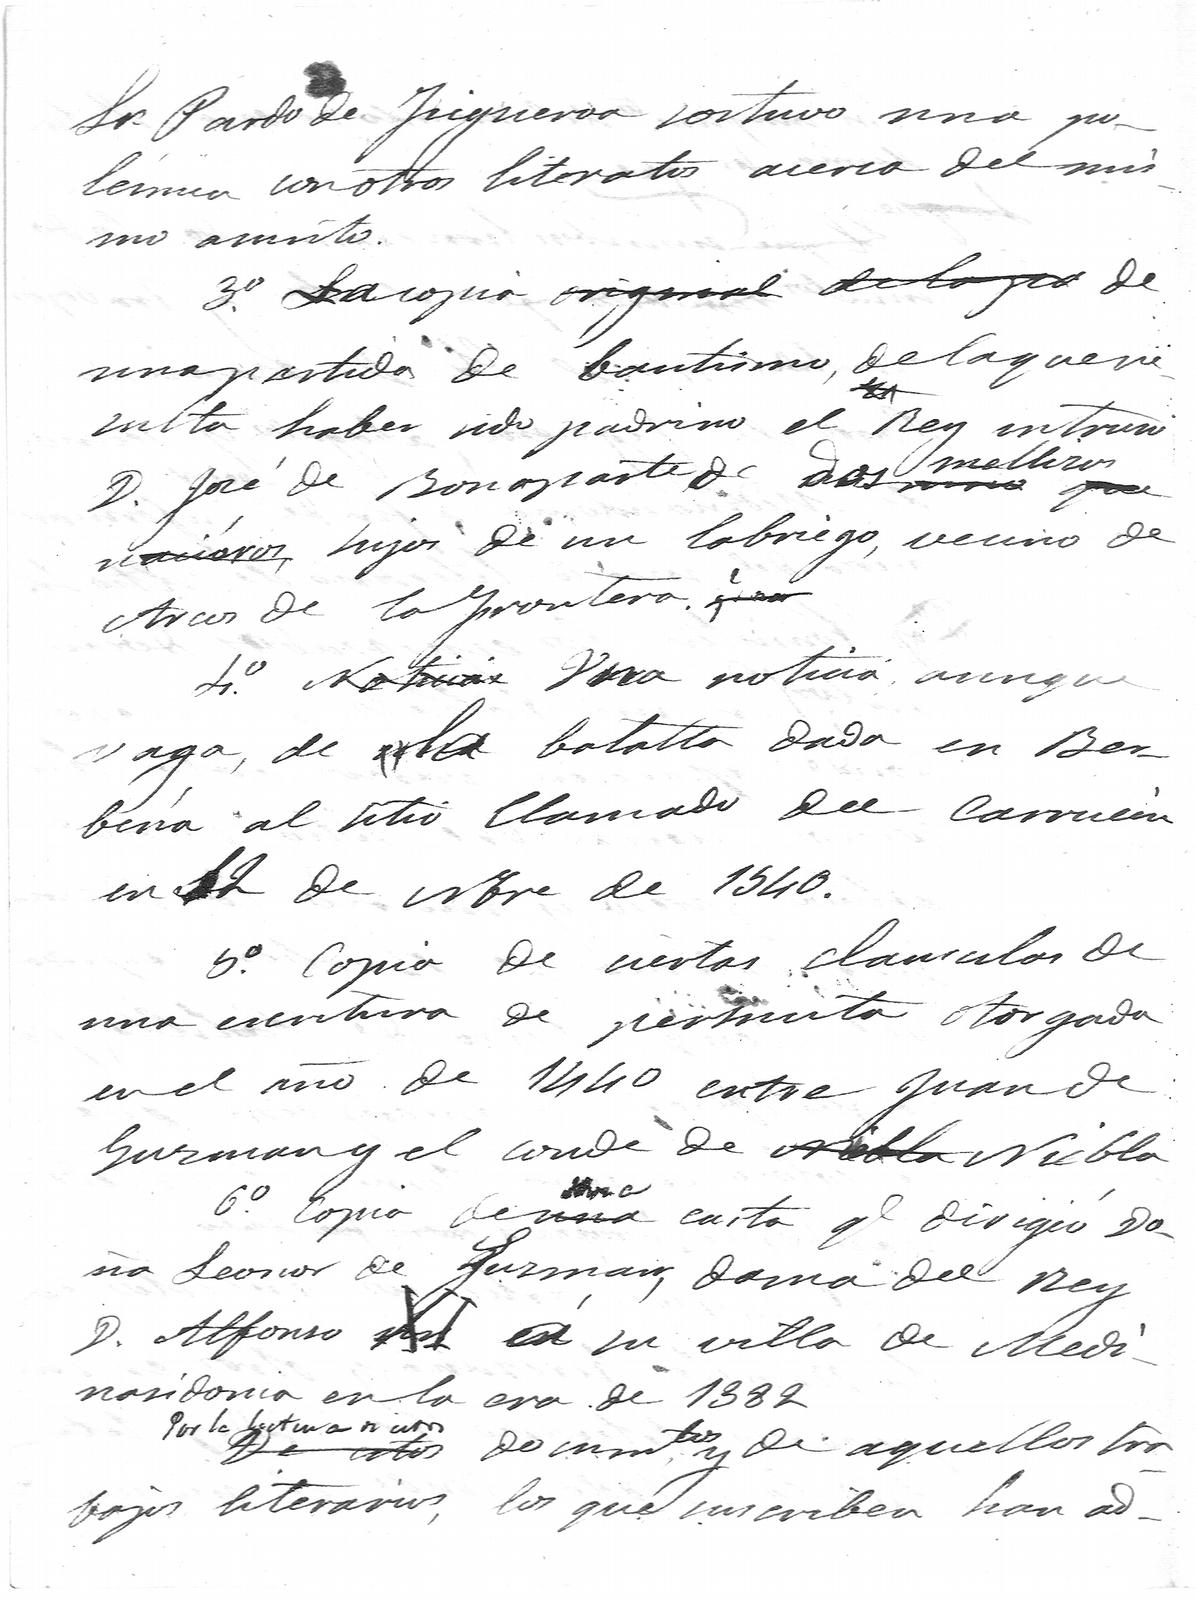 Sr. Pardo de Figueroa sostuvo una po-
lémica con otros literatos acerca del mis-
mo asunto.
3º. La copia original de la pa de
una partida de bautismo, de la que re-
sulta haber sido padrino el Rey intruso
D. José de Bonaparte de dos mellizos
hijos de un labriego, vecino de
Arcos de la Frontera.
4º. Noticias Una noticia, aunque
vaga, de la batalla dada en Ber-
bería al sitio llamado del Carrucin
en 12 de Nbre de 1540.
5º. Copia de ciertas clausulas de
una escritura de permuta otorgada
en el año de 1440 entre Juan de
Guzman y el conde de Niebla Niebla
6º. Copia de una carta ql dirigió Do-
ña Leonor de Guzman, dama del Rey
D. Alfonso XI en su villa de Medi-
nasidonia en la era de 1382
Por la lectura de estos
De estos documtos y de aquellos tra
bajos literarios, los que suscriben han ad-